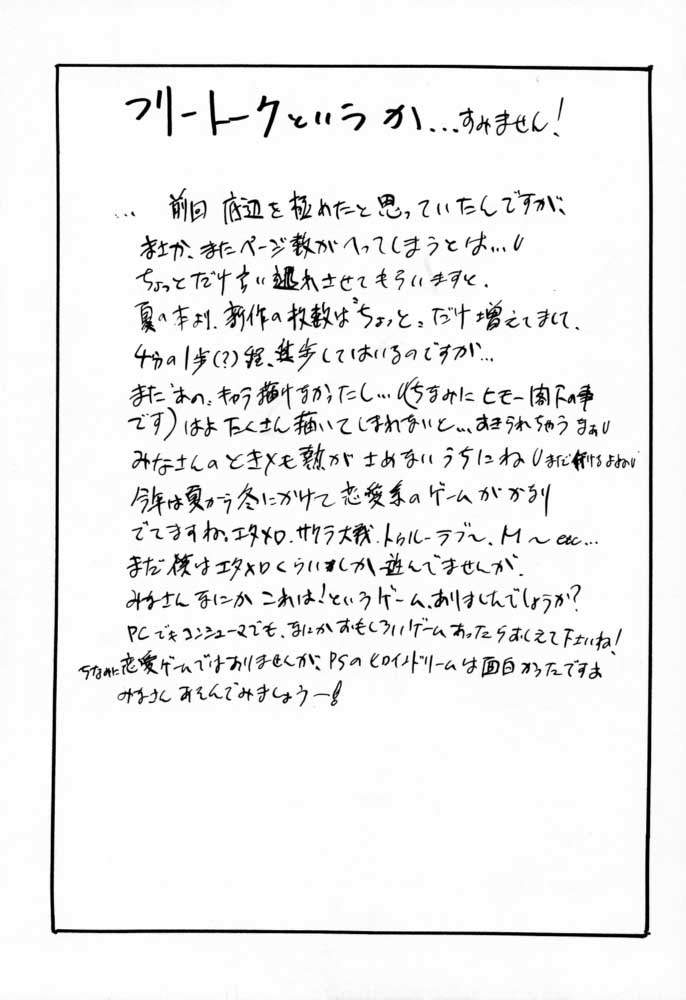 フリートークというか…すみません!
… 前回 底辺を極めたと思っていたんですが、
まさか、またページ数がへってしまうとは…
ちょっとだけ言い逃れさせてもらいますと、
夏の本より、新作の枚数は"ちょっと"だけ増えてまして、
4分の1歩(?)程、進歩してはいるのですが…
まだ"あの"キャラ描けなかったし…(ちなみにヒモー閣下の事
です)はよ たくさん描いてしまわないと…あきられちゃうなぁ
みなさんのときメモ熱がさめないうちにね まだ行けるよね
今年は夏から冬にかけて恋愛系のゲームがかなり
でてますね。エタメロ、サクラ大戦、トゥルーラブ〜、M〜etc…
まだ僕はエタメロくらいしか遊んでませんが、
みなさんなにかこれは!というゲーム、ありましたでしょうか?
PCでもコンシューマでも、なにかおもしろいゲームあったらおしえて下さいね!
ちなみに恋愛ゲームではありませんが、PSのヒロインドリームは面白かったですよ
みなさんあそんでみましょうー!